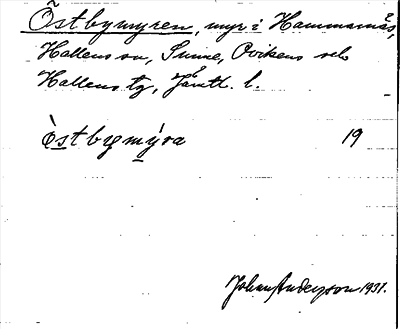 Östbymyren, myr i Hammarnäs,
Hallens sn, Sunne, Ovikens o
Hallens tg, Jämtl. l.
östbymýra 19
Johan Anderzson 1931.